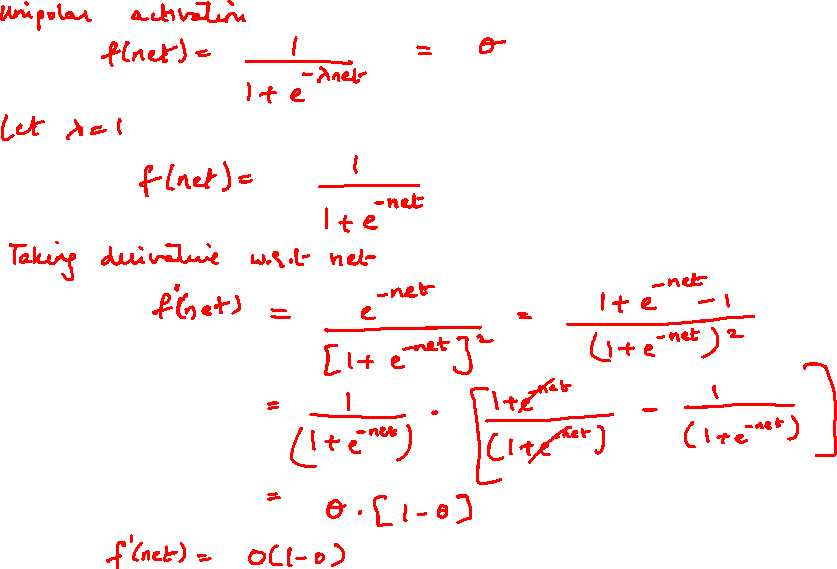 Unipolar activation
f(net) = 1 / (1 + e^(-λnet)) = θ
Let λ=1
f(net) = 1 / (1 + e^(-net))
Taking derivative w.r.t net
f'(net) = e^(-net) / [1 + e^(-net)]^2 = (1 + e^(-net) - 1) / (1 + e^(-net))^2
= 1 / (1 + e^(-net)) · [(1 + e^(-net)) / (1 + e^(-net)) - 1 / (1 + e^(-net))]
= θ · [1 - θ]
f'(net) = O(1-O)